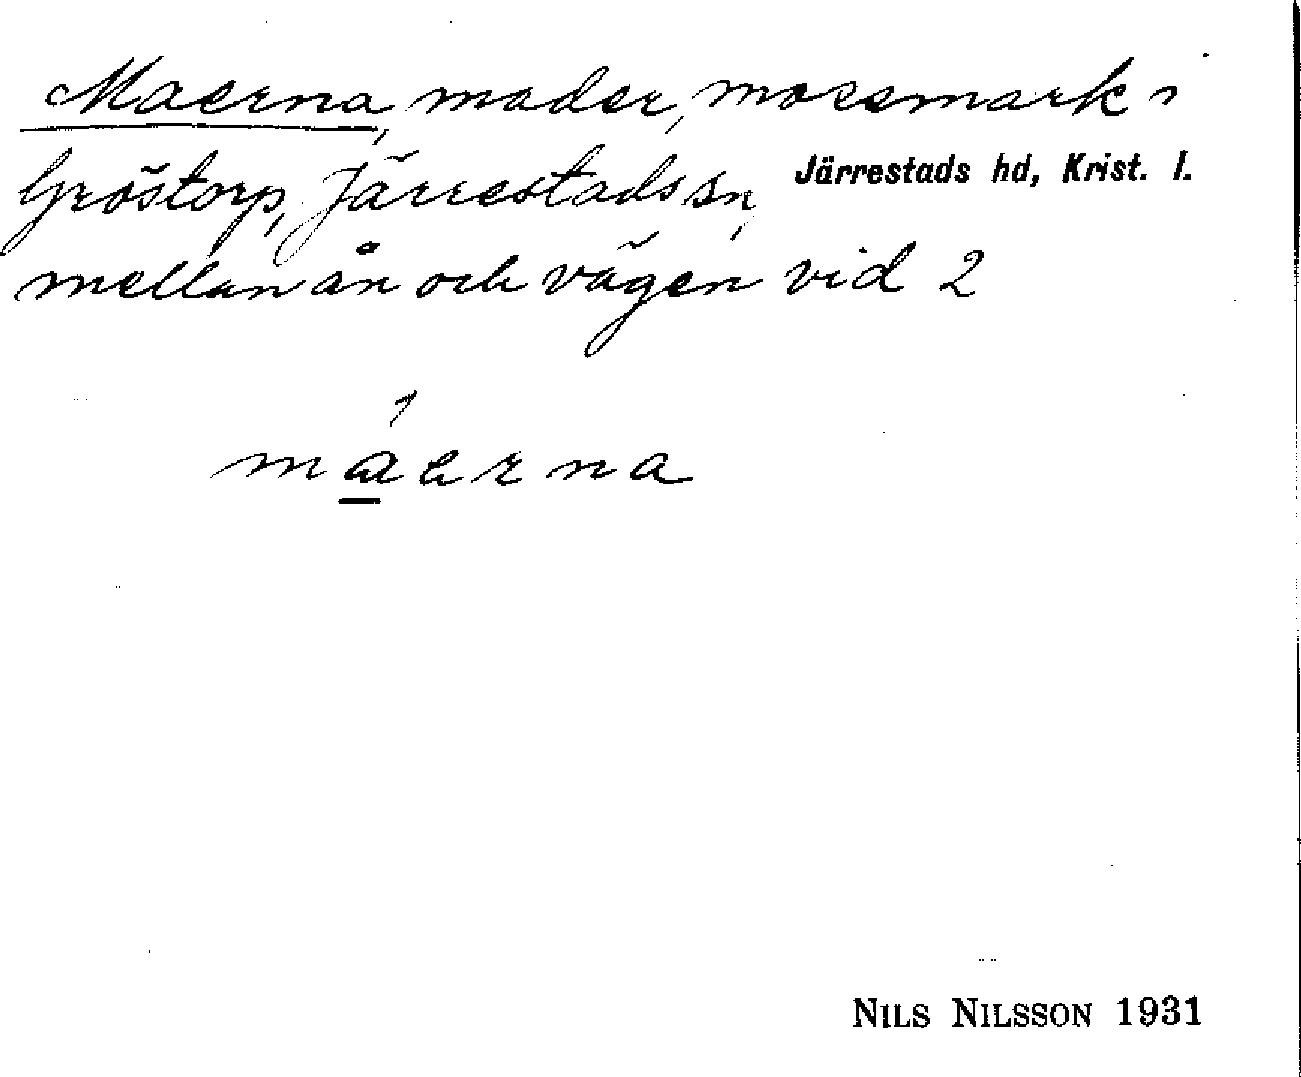 Maerna, mader, mossmark i
Gröstorp, Järrestads sn, Järrestads hd, Krist. l.
mellan ån och vägen vid 2
máerna
NILS NILSSON 1931